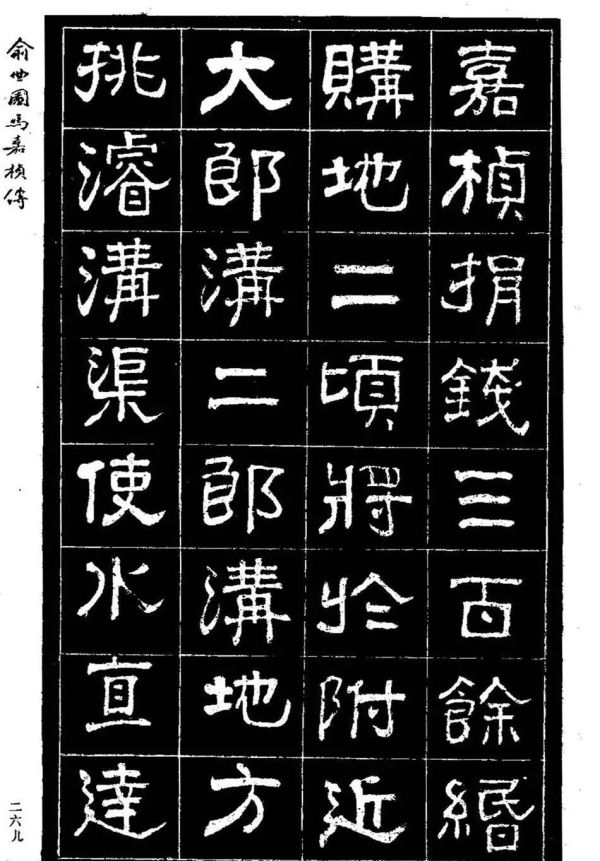 嘉楨捐錢三百餘緡
購地二頃將於附近
大郎溝二郎溝地方
挑濬溝渠使水直達
俞曲園馬嘉楨傳
二六九